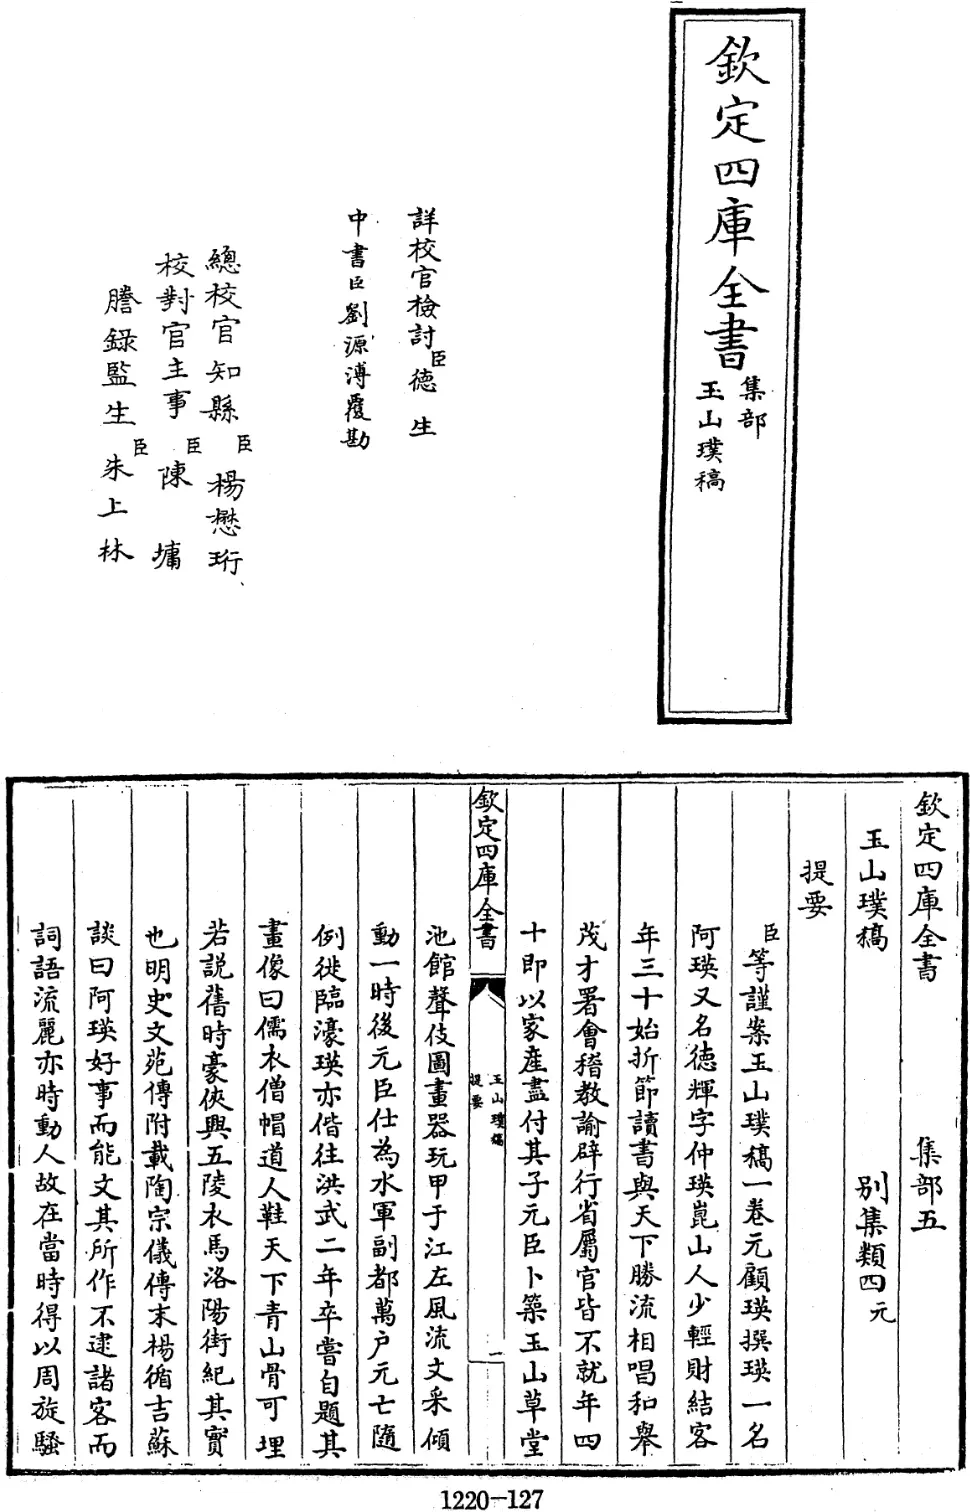 欽定四庫全書
集部
玉山璞稿
詳校官檢討臣德生
中書臣劉源溥覆勘
總校官知縣臣楊懋珩
校對官主事臣陳墉
謄錄監生臣朱上林
欽定四庫全書 集部五
玉山璞稿 别集類四元
提要
臣等謹案玉山璞稿一卷元顧瑛撰瑛一名
阿瑛又名德輝字仲瑛崑山人少輕財結客
年三十始折節讀書與天下勝流相唱和舉
茂才署會稽教諭辟行省屬官皆不就年四
十即以家產盡付其子元臣卜築玉山草堂
欽定四庫全書
玉山璞稿
提要
一
池館聲伎圖畫器玩甲于江左風流文采傾
動一時後元臣仕為水軍副都萬户元亡隨
例徙臨濠瑛亦偕往洪武二年卒嘗自題其
畫像曰儒衣僧帽道人鞋天下青山骨可埋
若説舊時豪俠興五陵衣馬洛陽街紀其實
也明史文苑傳附載陶宗儀傳末楊循吉蘇
談曰阿瑛好事而能文其所作不逮諸客而
詞語流麗亦時動人故在當時得以周旋騷
1220-127